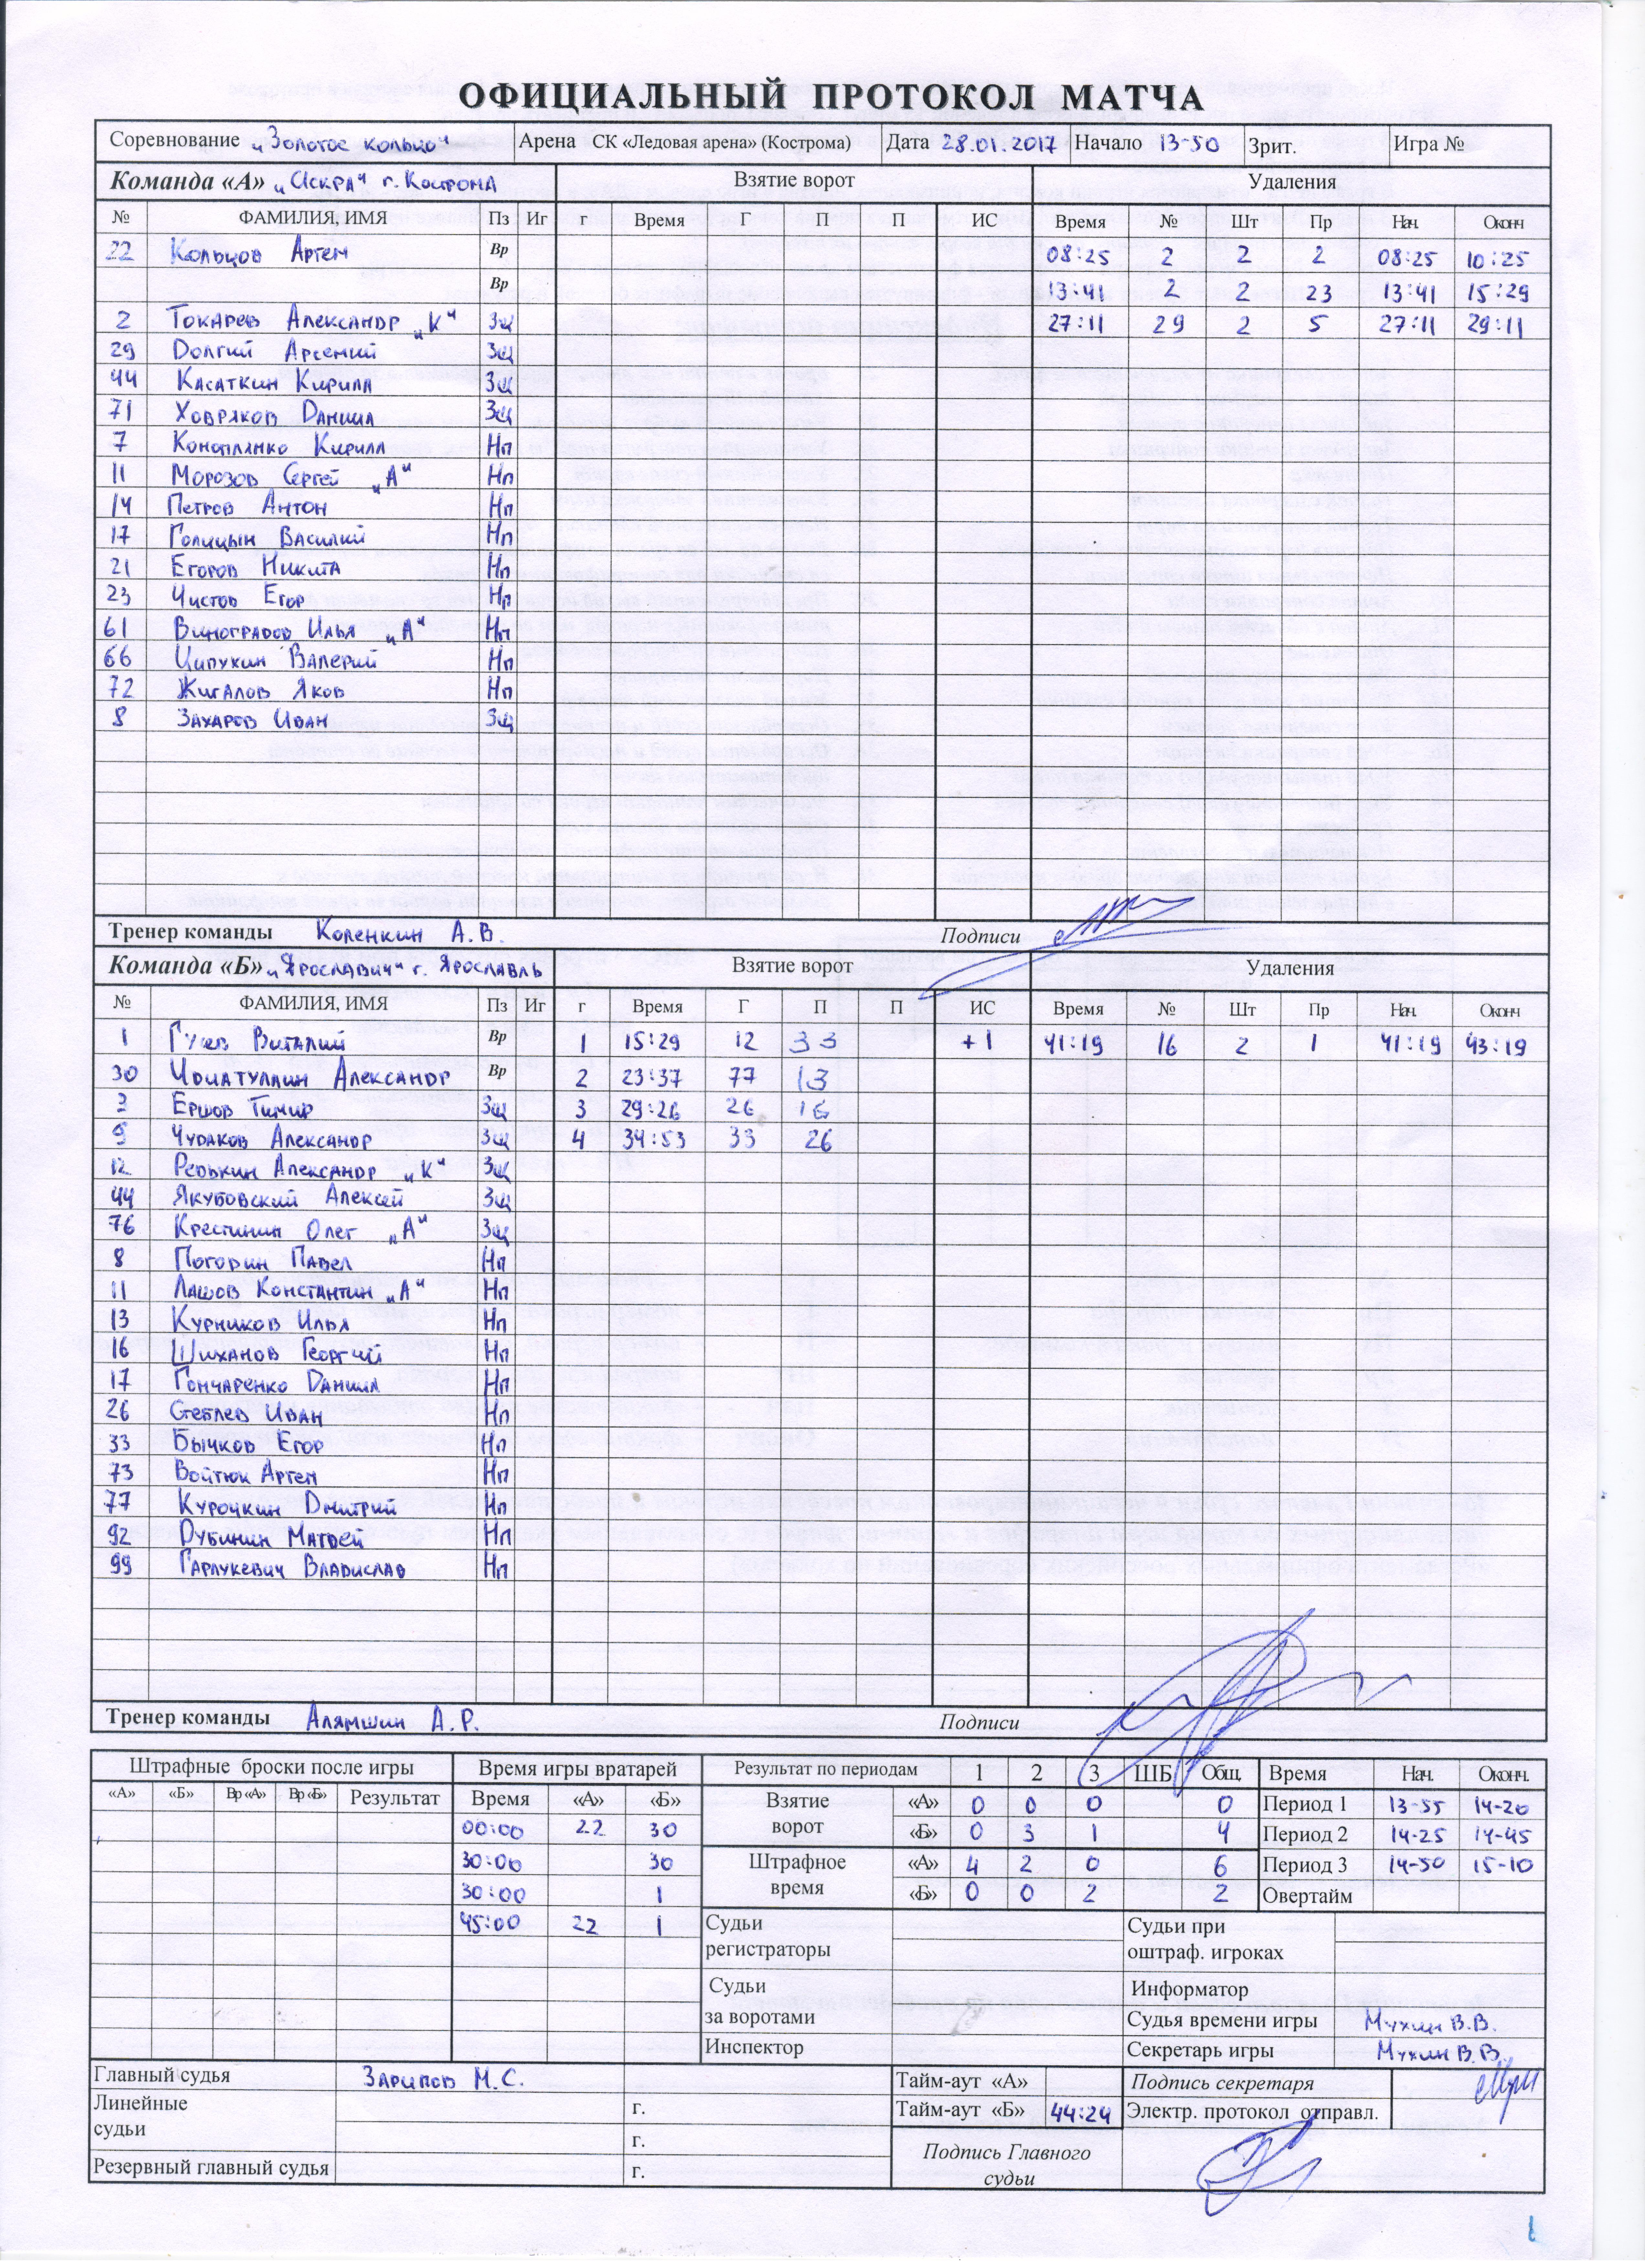 ОФИЦИАЛЬНЫЙ ПРОТОКОЛ МАТЧА
Соревнование „Золотое кольцо" Арена СК «Ледовая арена» (Кострома) Дата 28.01.2017 Начало 13-50 Зрит. Игра №
Команда «А» „Искра" г. Кострома Взятие ворот Удаления
№ ФАМИЛИЯ, ИМЯ Пз Иг г Время Г П П ИС Время № Шт Пр Нач. Оконч
22 Кольцов Артем Вр 08:25 2 2 2 08:25 10:25
Вр 13:41 2 2 23 13:41 15:29
2 Токарев Александр „К" Зщ 27:11 29 2 5 27:11 29:11
29 Долгий Арсений Зщ
44 Касаткин Кирилл Зщ
71 Ховряков Данила Зщ
7 Коноплянко Кирилл Нп
11 Морозов Сергей „А" Нп
14 Петров Антон Нп
17 Голицын Василий Нп
21 Егоров Никита Нп
23 Чистов Егор Нр
61 Виноградов Илья „А" Нп
66 Ципукин Валерий Нп
72 Жигалов Яков Нп
8 Захаров Иван Зщ
Тренер команды Коленкин А.В. Подписи
Команда «Б» „Ярославич" г. Ярославль Взятие ворот Удаления
№ ФАМИЛИЯ, ИМЯ Пз Иг г Время Г П П ИС Время № Шт Пр Нач. Оконч
1 Гусев Виталий Вр 1 15:29 12 33 +1 41:19 16 2 1 41:19 43:19
30 Александр Вр 2 23:37 77 13
Ершов Тимур Зщ 3 29:26 26 16
9 Чудаков Александр Зщ 4 34:53 33 26
12 Редькин Александр „К" Зщ
44 Якубовский Алексей Зщ
76 Крестинин Олег „А" Зщ
8 Погодин Павел Нп
11 Лашов Константин „А" Нп
13 Курников Илья Нп
16 Шиханов Георгий Нп
17 Гончаренко Данила Нп
26 Стеблев Иван Нп
33 Бычков Егор Нп
73 Войтюк Артем Нп
77 Курочкин Дмитрий Нп
92 Дубинин Матвей Нп
99 Гарлукевич Владислав Нп
Тренер команды Алямшин А.Р. Подписи
Штрафные броски после игры Время игры вратарей Результат по периодам 1 2 3 ШБ Общ. Время Нач. Оконч.
«А» «Б» Вр «А» Вр «Б» Результат Время «А» «Б» Взятие ворот «А» 0 0 0 0 Период 1 13-55 14-20
00:00 22 30 «Б» 0 3 1 4 Период 2 14-25 14-45
30:00 30 Штрафное время «А» 4 2 0 6 Период 3 14-50 15-10
30:00 1 «Б» 0 0 2 2 Овертайм
45:00 22 1 Судьи регистраторы Судьи при оштраф. игроках
Судьи за воротами Информатор
Судья времени игры Мухин В.В.
Инспектор Секретарь игры Мухин В.В.
Главный судья Зарипов М.С. Тайм-аут «А» Подпись секретаря
Линейные судьи г. Тайм-аут «Б» 44:24 Электр. протокол отправл.
г. Подпись Главного судьи
Резервный главный судья г.